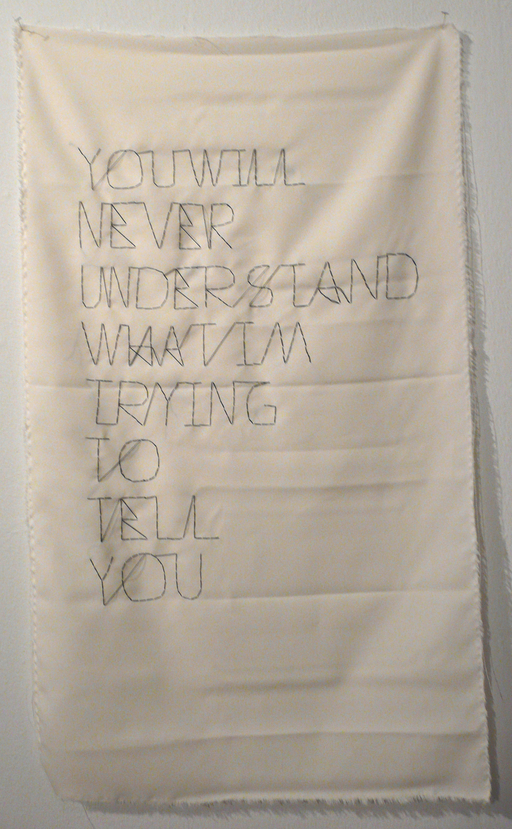 YOU WILL
NEVER
UNDERSTAND
WHAT IM
TRYING
TO
TELL
YOU